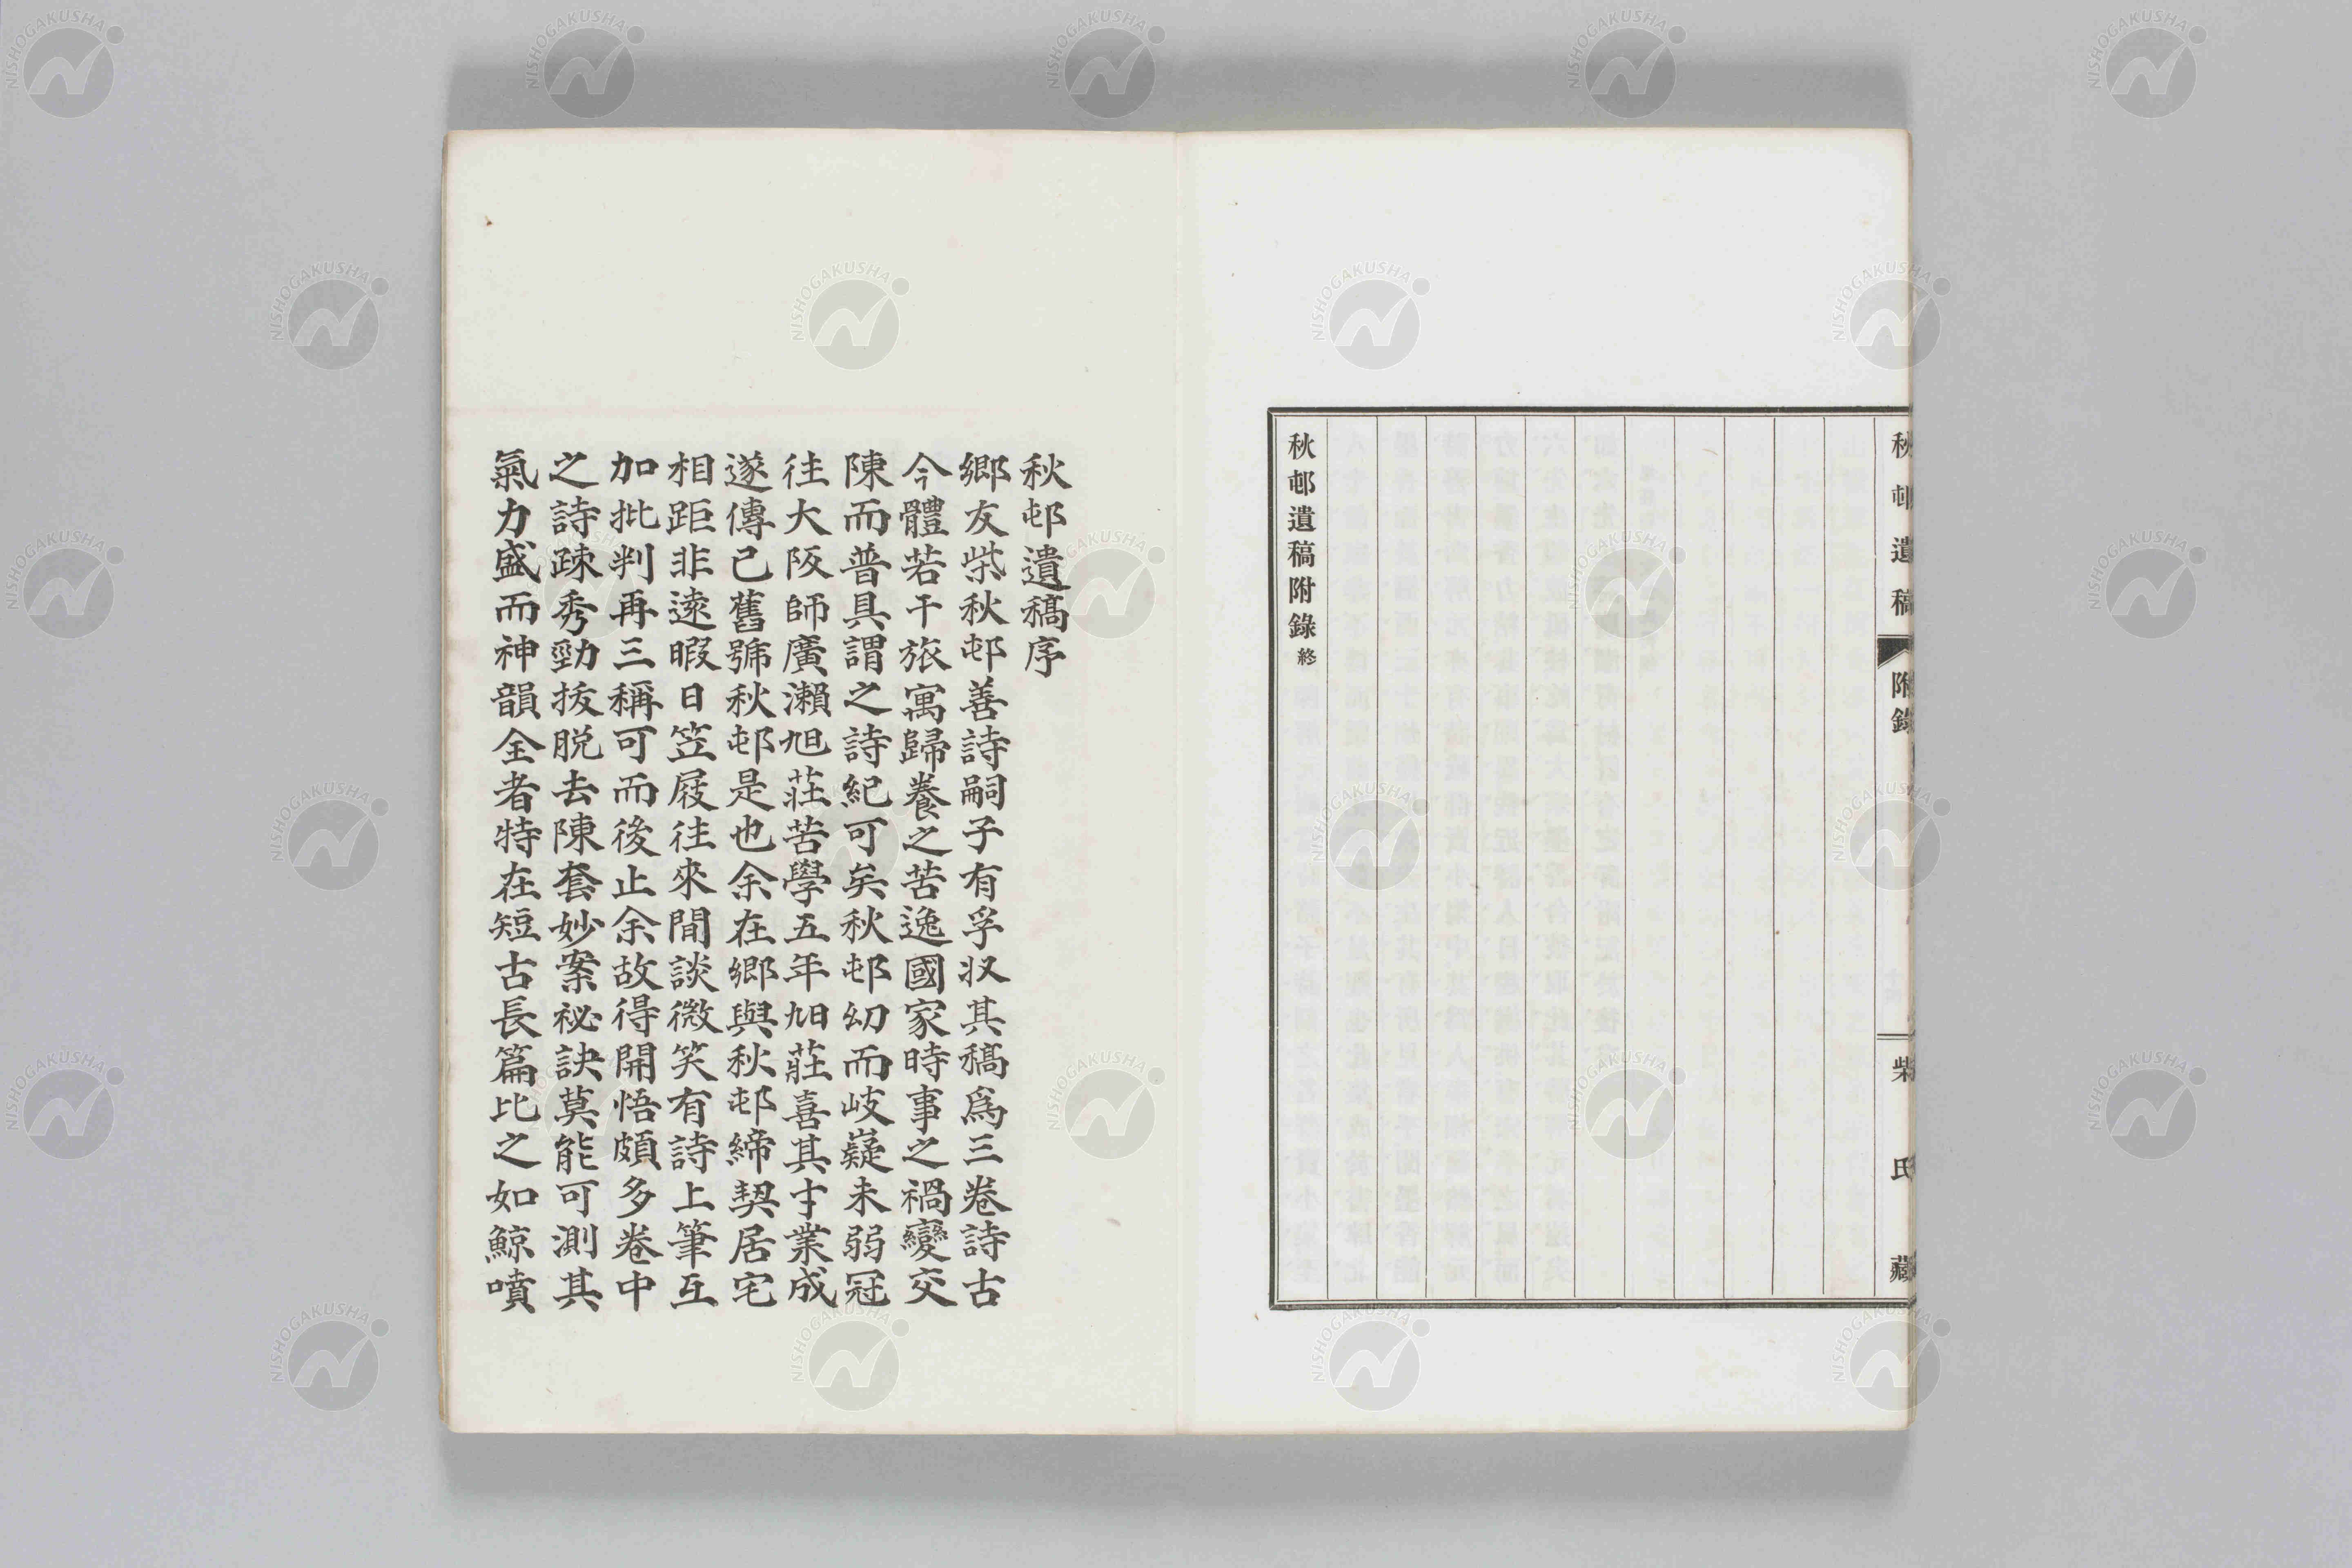 秋邨遺稿
附錄
柴氏藏
秋邨遺稿附錄終
秋邨遺稿序
鄉友柴秋邨善詩嗣子有孚収其稿爲三卷詩古
今體若干旅寓歸養之苦逸國家時事之禍變交
陳而普具謂之詩紀可矣秋邨幼而岐嶷未弱冠
徃大阪師廣瀨旭莊苦學五年旭莊喜其才業成
遂傳己舊號秋邨是也余在鄉與秋邨締契居宅
相距非遠暇日笠屐徃來閒談微笑有詩上筆互
加批判再三稱可而後止余故得開悟頗多卷中
之詩疎秀勁拔脱去陳套妙案祕訣莫能可測其
氣力盛而神韻全者特在短古長篇比之如鯨噴
NISHOGAKUSHA